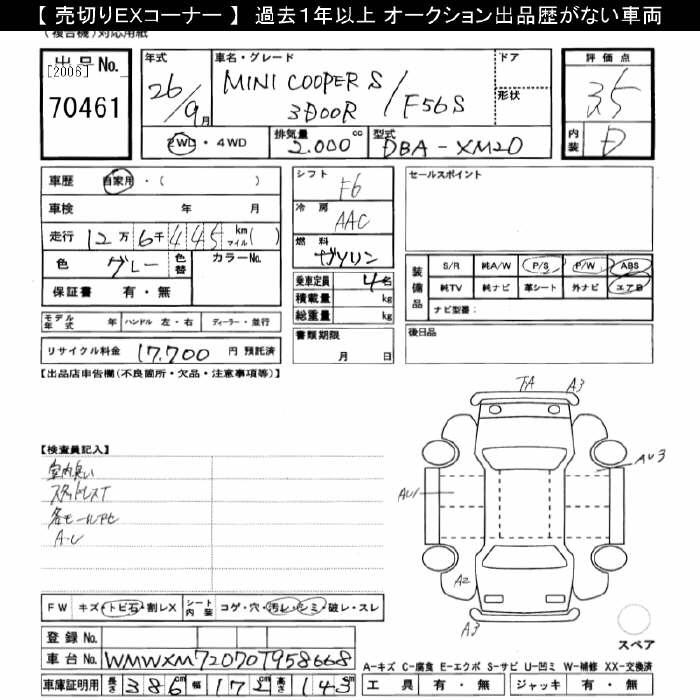 【 売切りEXコーナー 】 過去1年以上 オークション出品歴がない車両
(複合機)対応用紙
出品No.
[2006]
70461
年式 26/9月
車名・グレード MINI COOPER S 3DOOR / F56S
ドア
形状
評価点 3.5
内装 D
2WD・4WD
排気量 2.000 cc
型式 DBA-XM20
車歴 自家用・( )
車検 年 月
走行 12万6千445 km マイル( )
色 グレー 色替 カラーNo.
保証書 有・無
シフト F6
冷房 AAC
燃料 ガソリン
乗車定員 4名
積載量 kg
総重量 kg
書類期限
月 日
セールスポイント
装備品 S/R 純A/W P/S P/W ABS
純TV 純ナビ 革シート 外ナビ エアB
ナビ型番:
後日品
モデル年式 年 ハンドル 左・右 ディーラー・並行
リサイクル料金 17,700 円 預託済
【出品店申告欄(不良箇所・欠品・注意事項等)】
TA A3
【検査員記入】
室内臭い
スタッドレスT
各モールアセ
A・U
AU3
AU1
A2
A3
スペア
FW キズ・トビ石・割レX シート内装 コゲ・穴・汚レ・シミ・破レ・スレ
登録No.
車台No. WMWXM720707958668
A-キズ C-腐食 E-エクボ S-サビ U-凹ミ W-補修 XX-交換済
車庫証明用 長さ 386cm 幅 172cm 高さ 143cm
工具 有・無 ジャッキ 有・無